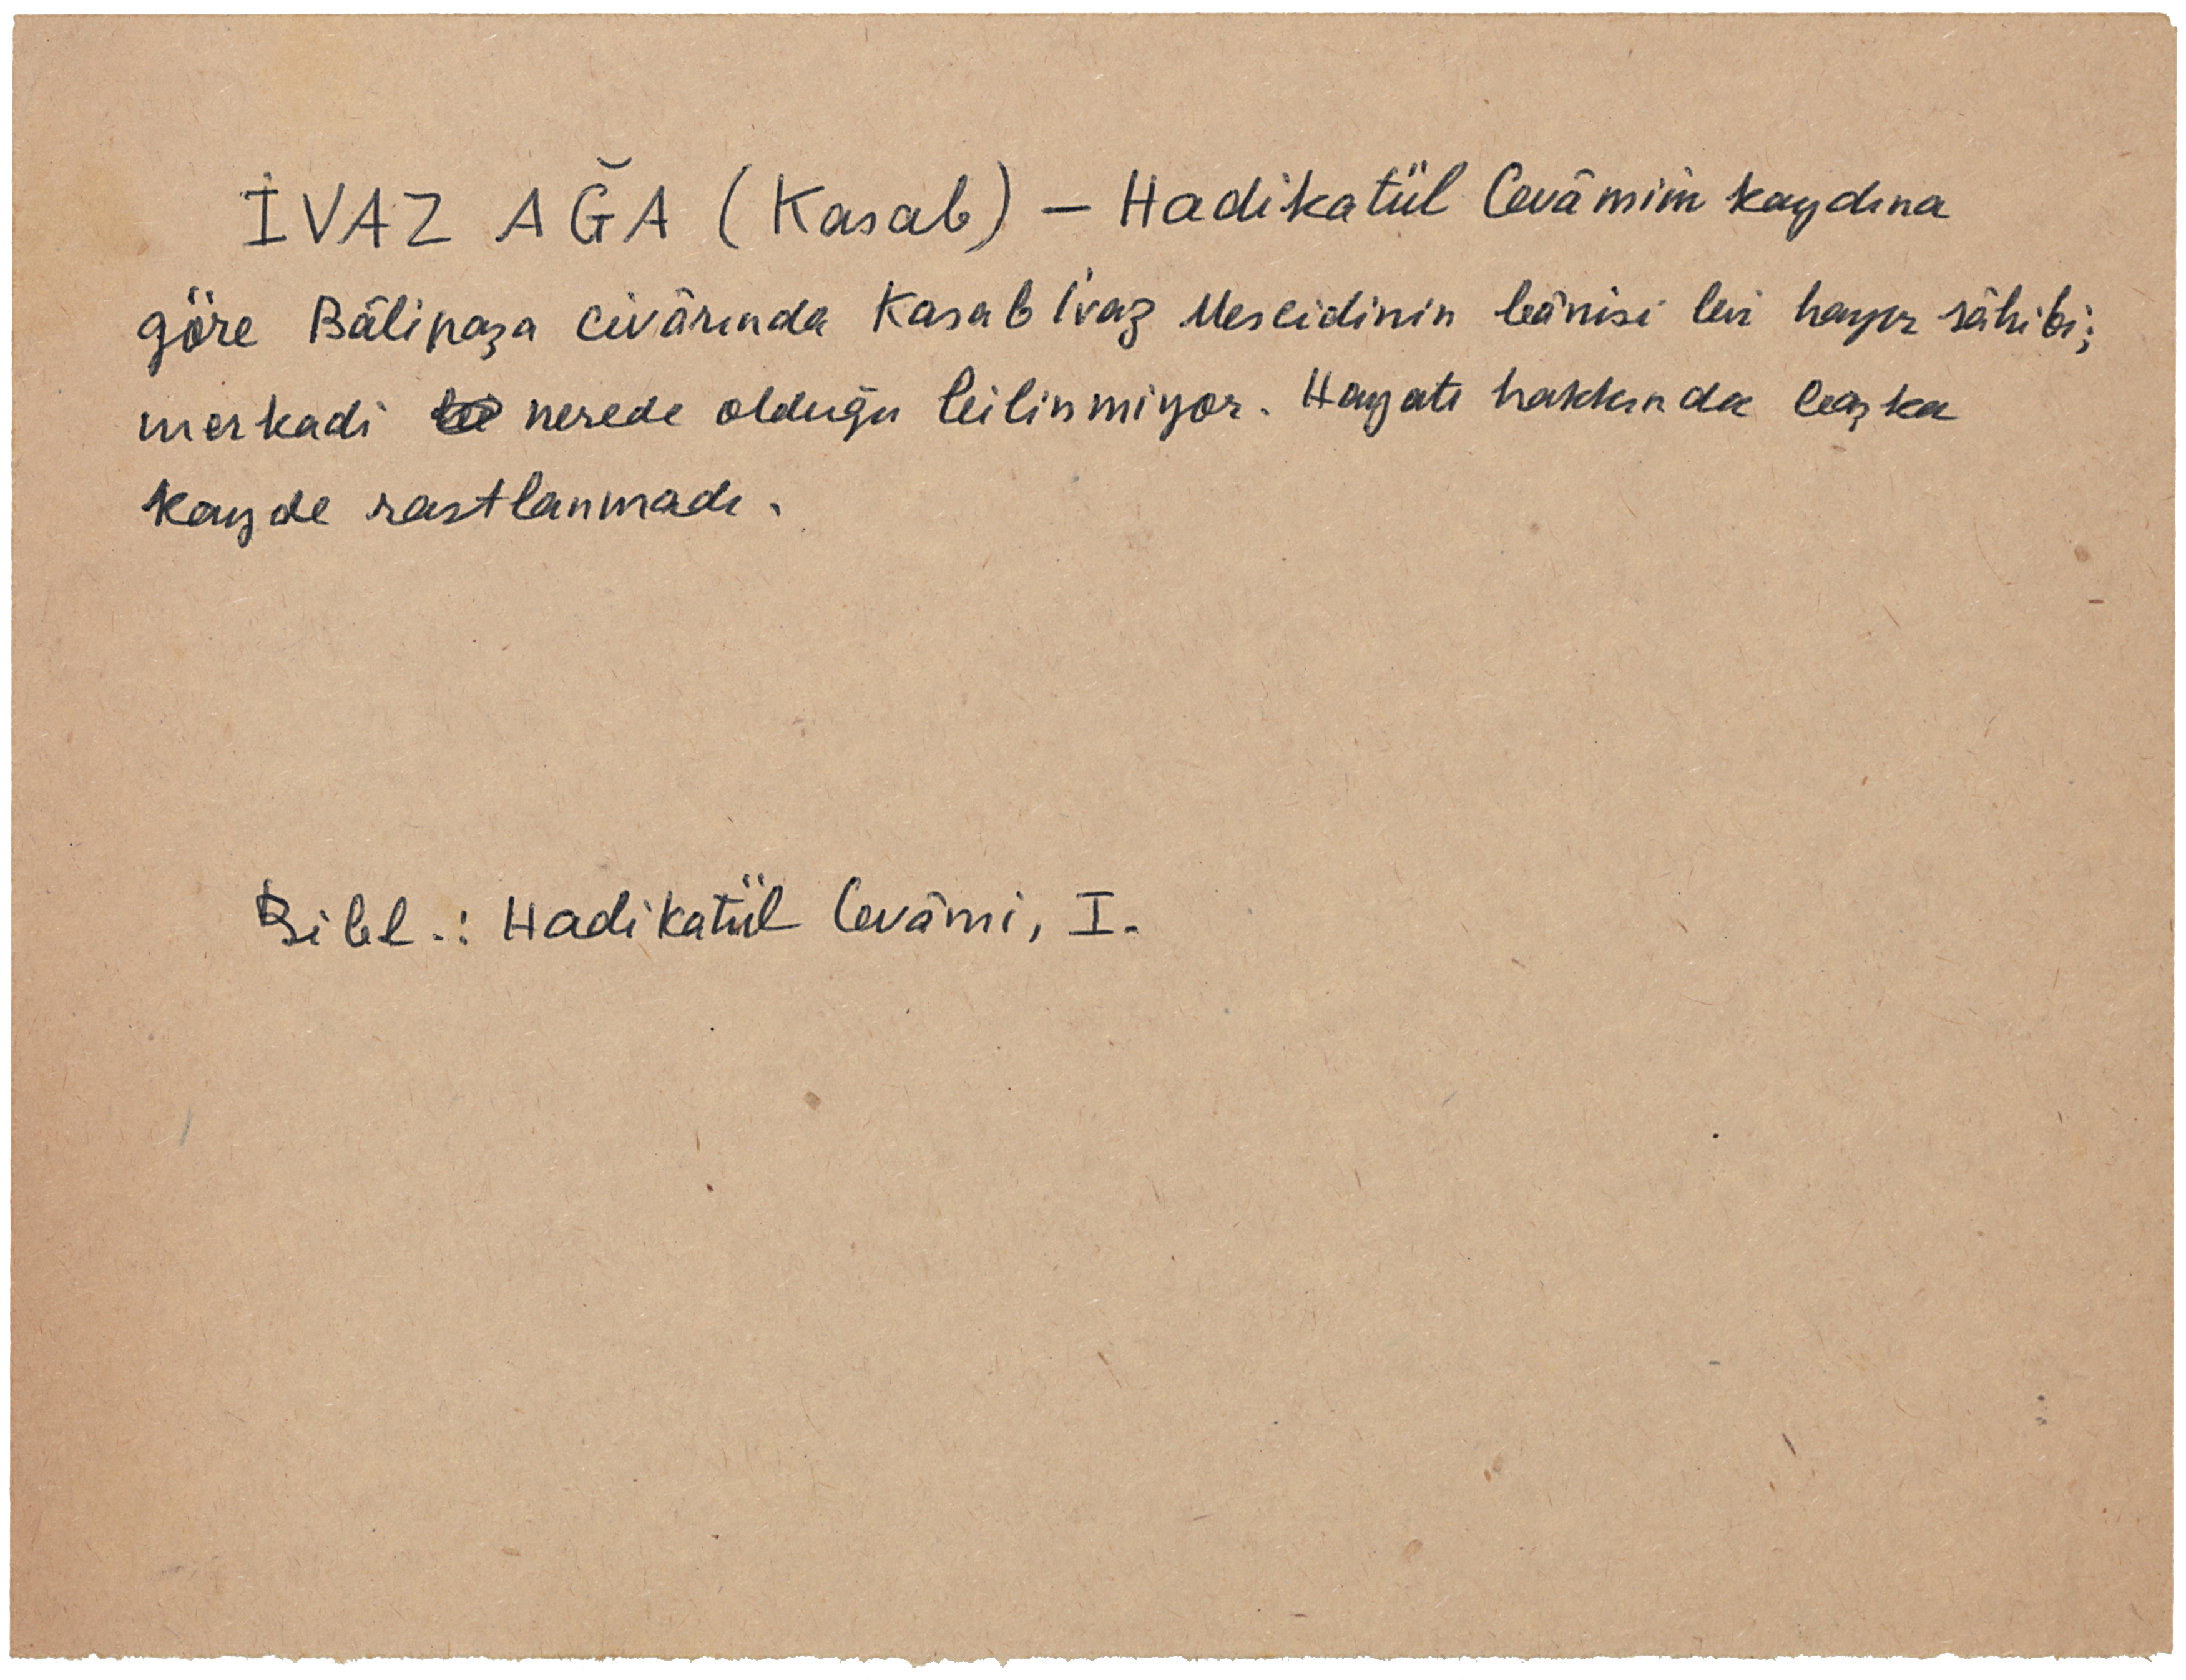 İVAZ AĞA (Kasab) — Hadikatül Cevâmiin kaydına
göre Bâlipaşa civârında Kasab İvaz Mescidinin bânisi bir hayır sâhibi;
merkadi nerede olduğu bilinmiyor. Hayatı hakkında başka
kayde rastlanmadı.
Bibl.: Hadikatül Cevâmi, I.